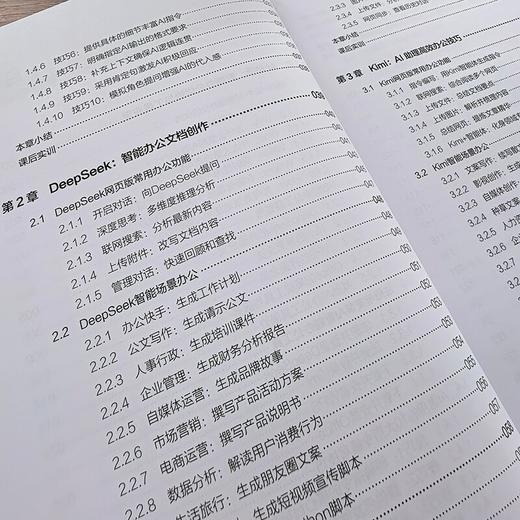 1.4.6 技巧6：提供具体的细节丰富AI指令
1.4.7 技巧7：明确指定AI输出的格式要求
1.4.8 技巧8：补充上下文确保AI逻辑连贯
1.4.9 技巧9：采用肯定句激发AI积极回应
1.4.10 技巧10：模拟角色提问增强AI的代入感
本章小结
课后实训
第2章 DeepSeek：智能办公文档创作
2.1 DeepSeek网页版常用办公功能
2.1.1 开启对话：向DeepSeek提问
2.1.2 深度思考：多维度推理分析
2.1.3 联网搜索：分析最新内容
2.1.4 上传附件：改写文档内容
2.1.5 管理对话：快速回顾和查找
2.2 DeepSeek智能场景办公
2.2.1 办公快手：生成工作计划 050
2.2.2 公文写作：生成请示公文
2.2.3 人事行政：生成培训课件 052
2.2.4 企业管理：生成财务分析报告
2.2.5 自媒体运营：生成品牌故事 054
2.2.6 市场营销：撰写产品活动方案 055
2.2.7 电商运营：撰写产品说明书 056
2.2.8 数据分析：解读用户消费行为 057
生活旅行：生成朋友圈文案
生成短视频宣传脚本
脚本
课后实训
第3章 Kimi：AI助理高效办公技巧
3.1 Kimi网页版常用办公功能
3.1.1 指令编写：用Kimi智能体生成指令
3.1.2 联网搜索：综合阅读多个网页
3.1.3 上传文件：总结文档要点
3.1.4 上传图片：解析并梳理内容
3.1.5 总结网页：提炼文章精华
3.1.6 Kimi+智能体：化身领域
3.2 Kimi智能场景办公
3.2.1 文案写作：续写
3.2.2 影视创作：生成
3.2.3 自媒体创作：
3.2.4 种草文案
3.2.5 人力
3.2.6 企
3.2.7
3.2.8
3.2.9